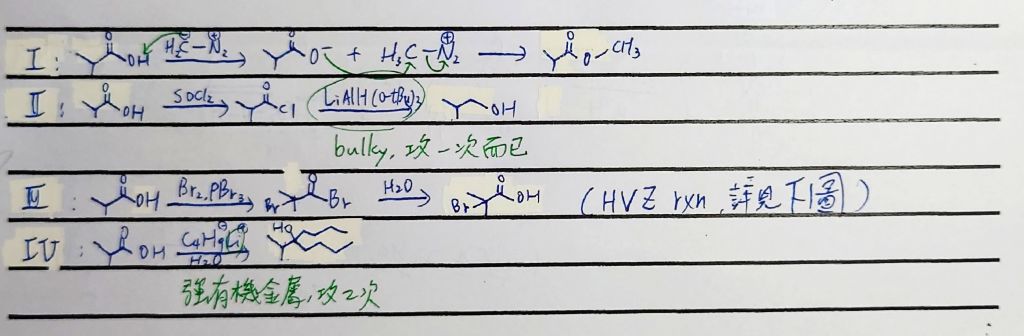 I : O OH H₂C⊖–N₂⊕ O O⁻ + H₃C–N₂⊕ O O CH₃
II : O OH SOCl₂ O Cl LiAlH(O-tBu)₂ OH
bulky, 攻一次而已
III : O OH Br₂, PBr₃ Br O Br H₂O Br O OH (HVZ rxn, 詳見下圖)
IV : O OH C₄H₉⊖Li⊕ H₂O HO
強有機金屬, 攻2次